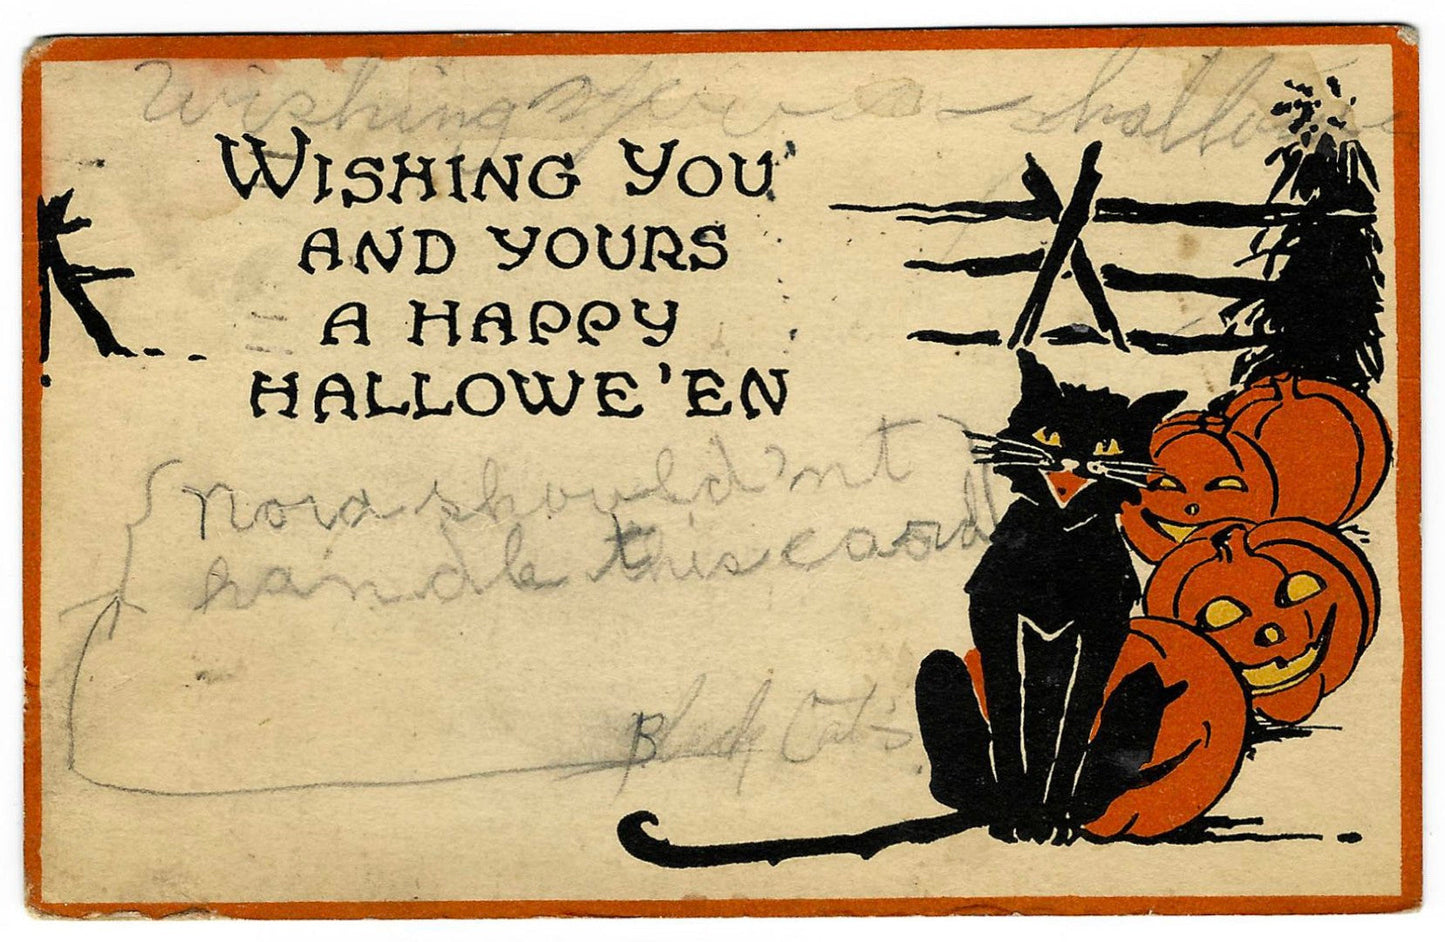 Wishing you a hallow
WISHING YOU
AND YOURS
A HAPPY
HALLOWE'EN
should'nt
handle this card
Black Cat's